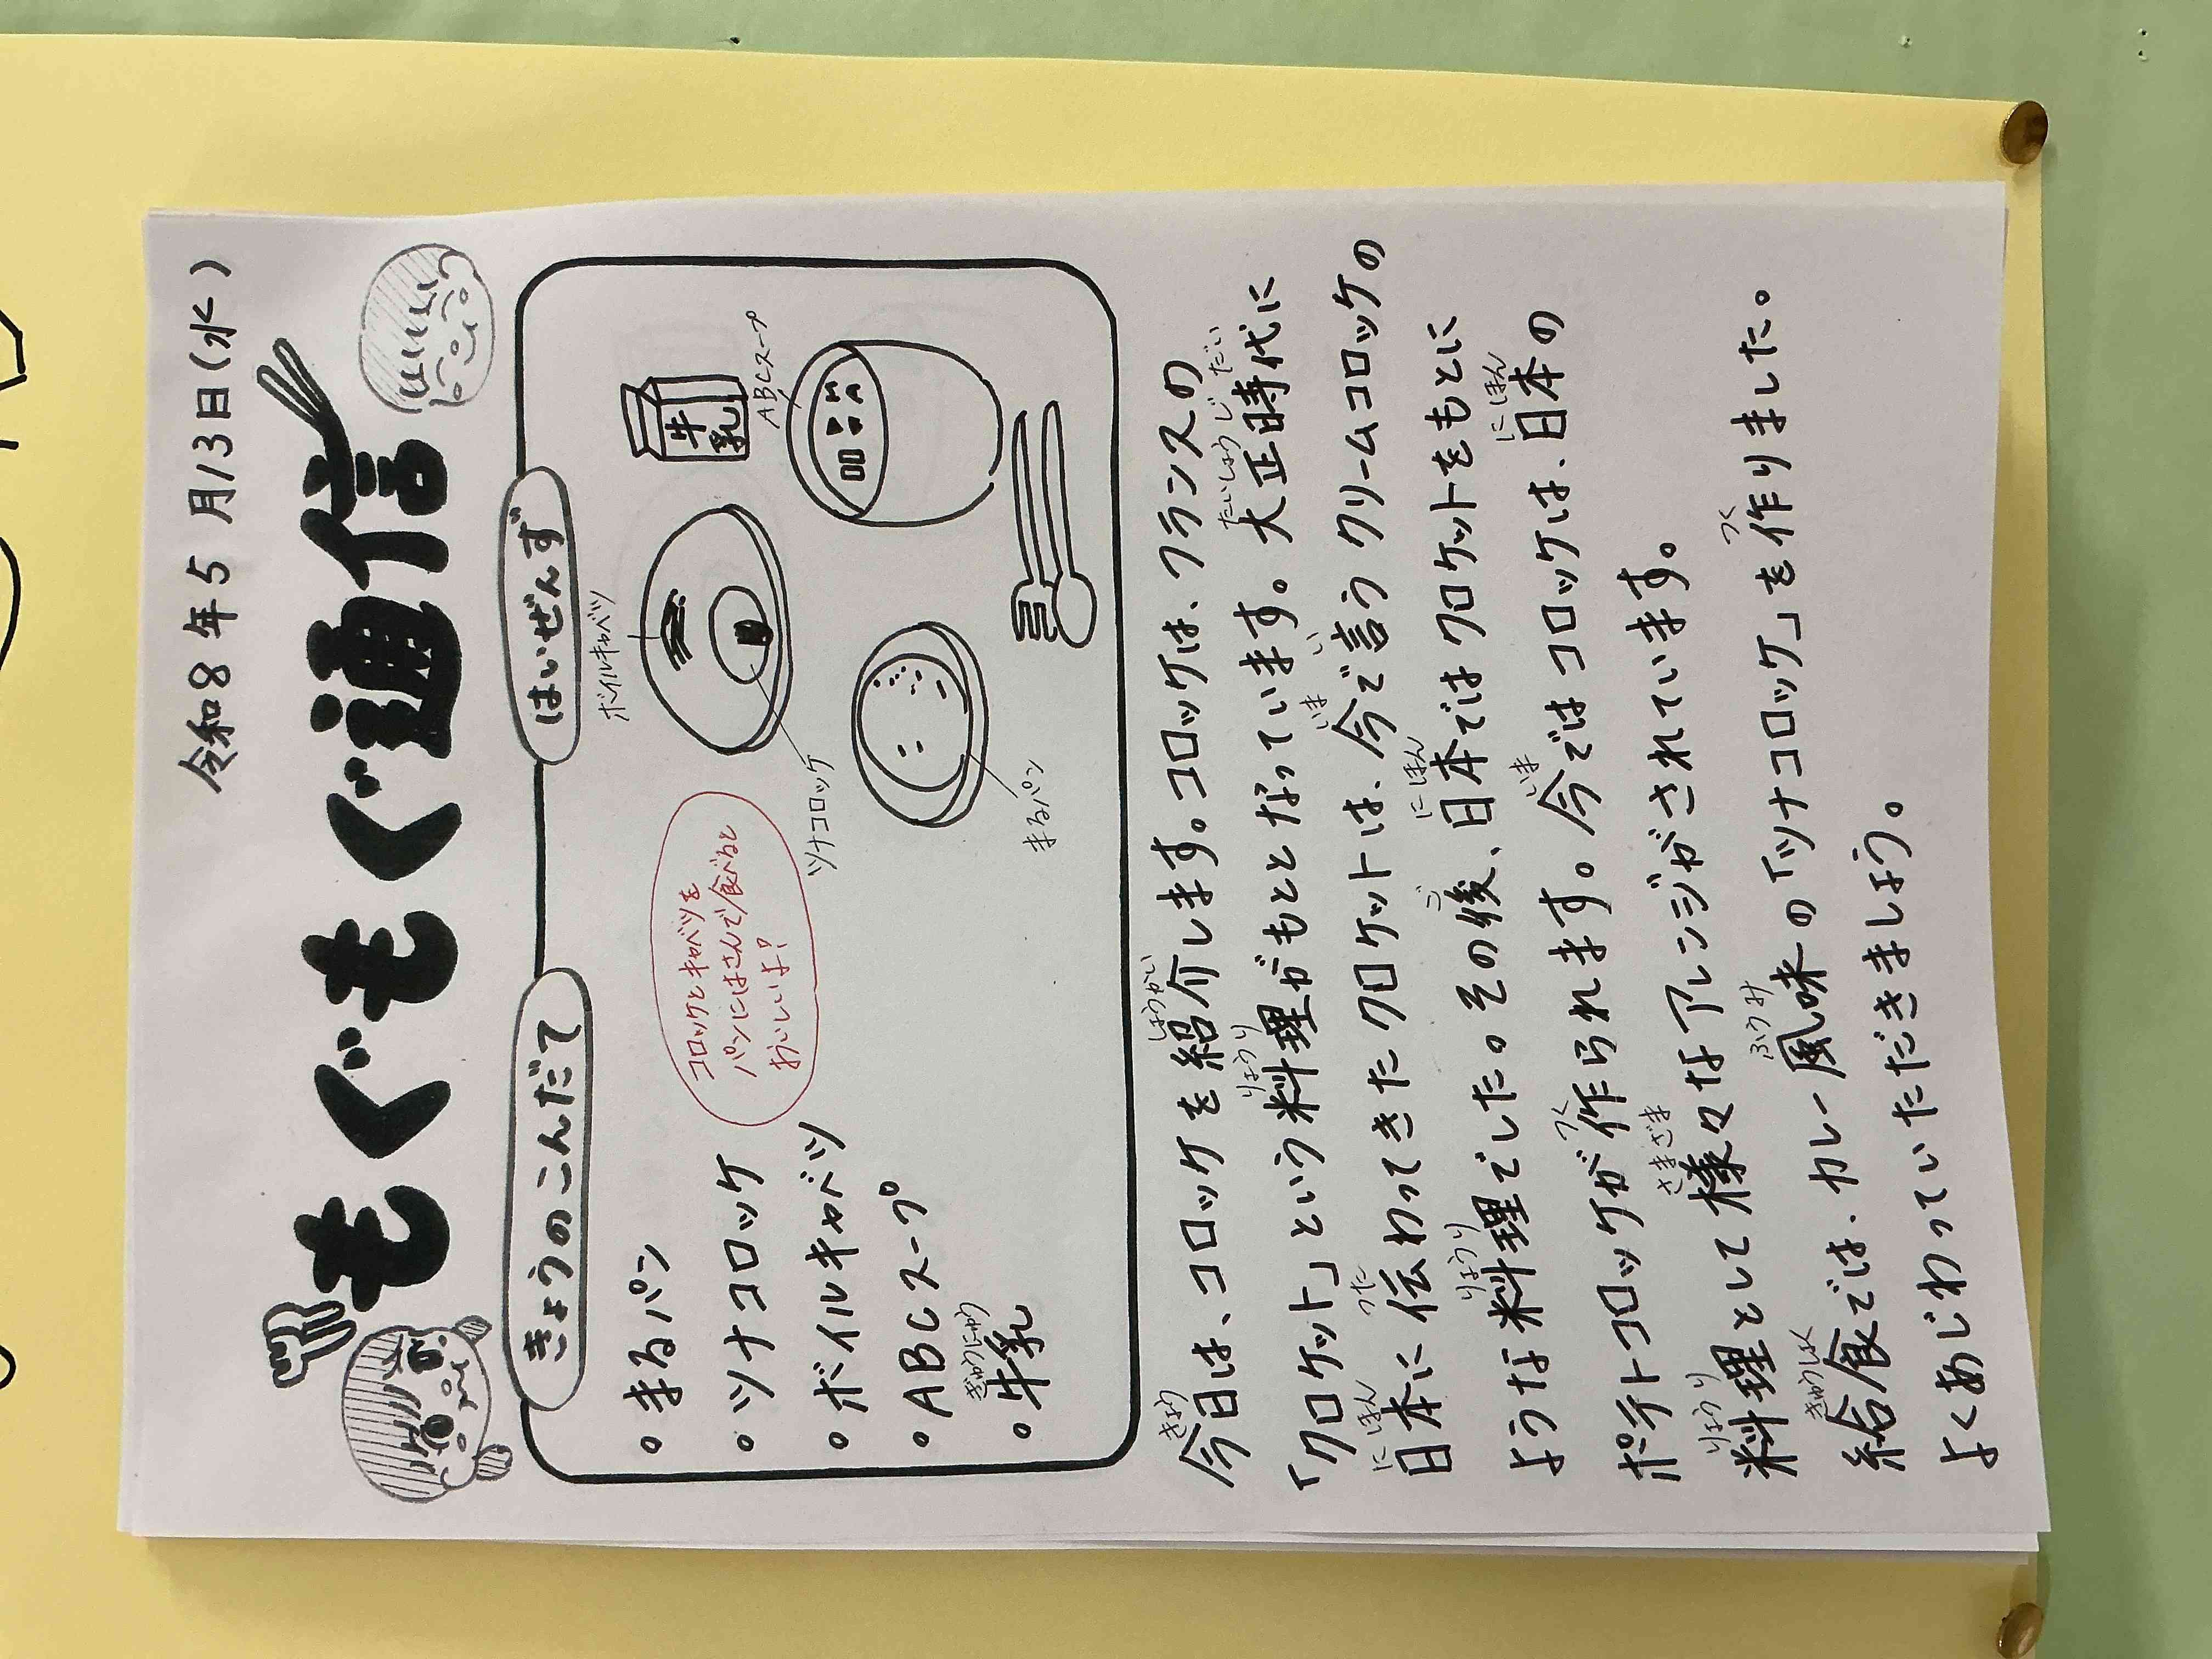 令和8年5月13日(水)
もぐもぐ通信
きょうのこんだて
はいぜんず
・まるパン
・ツナコロッケ
・ボイルキャベツ
・ABCスープ
ぎゅうにゅう
・牛乳
コロッケとキャベツを
パンにはさんで食べると
おいしいよ!?
ボイルキャベツ
牛乳
ABCスープ
ツナコロッケ
まるパン
きょう しょうかい
今日は、コロッケを紹介します。コロッケは、フランスの
りょうり たいしょうじだい
「クロケット」という料理がもととなっています。大正時代に
にほん つた いま い
日本に伝わってきたクロケットは、今で言うクリームコロッケの
りょうり ご にほん
ような料理でした。その後、日本ではクロケットをもとに
つく いま にほん
ポテトコロッケが作られます。今ではコロッケは、日本の
りょうり さまざま
料理として様々なアレンジがされています。
きゅうしょく ふうみ つく
給食では、カレー風味の「ツナコロッケ」を作りました。
よくあじわっていただきましょう。